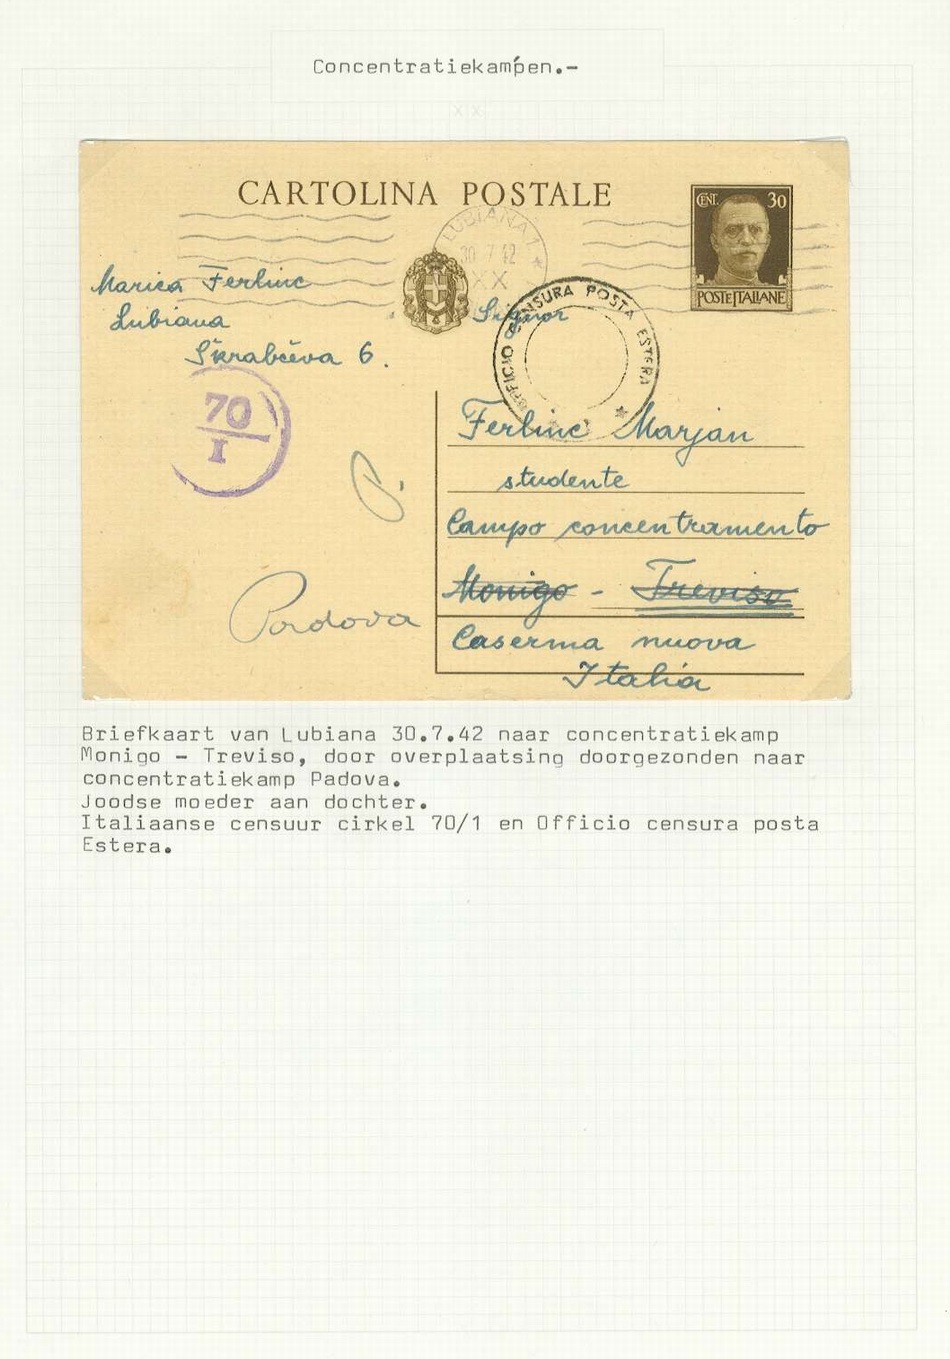 Concentratiekampen.-
XX
CARTOLINA POSTALE
CENT. 30
POSTE ITALIANE
LUBIANA 1 *
30 7 42
XX
Marica Ferlinc
Lubiana
Škrabčeva 6.
Signor
UFFICIO CENSURA POSTA ESTERA
70
I
Ferlinc Marjan
studente
Campo concentramento
Monigo - Treviso
Padova
Caserma nuova
Italia
Briefkaart van Lubiana 30.7.42 naar concentratiekamp
Monigo - Treviso, door overplaatsing doorgezonden naar
concentratiekamp Padova.
Joodse moeder aan dochter.
Italiaanse censuur cirkel 70/1 en Officio censura posta
Estera.